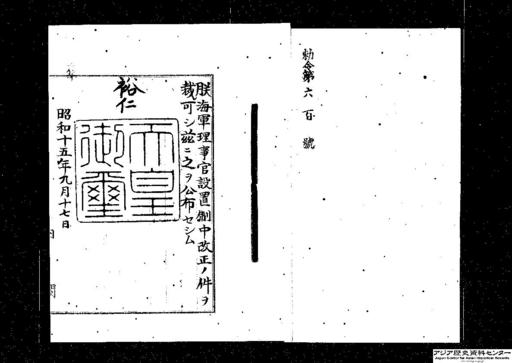 勅令第六百號
朕海軍理事官設置制中改正ノ件ヲ
裁可シ茲ニ之ヲ公布セシム
裕仁
天皇御璽
昭和十五年九月十七日
アジア歴史資料センター
Japan Center for Asian Historical Records